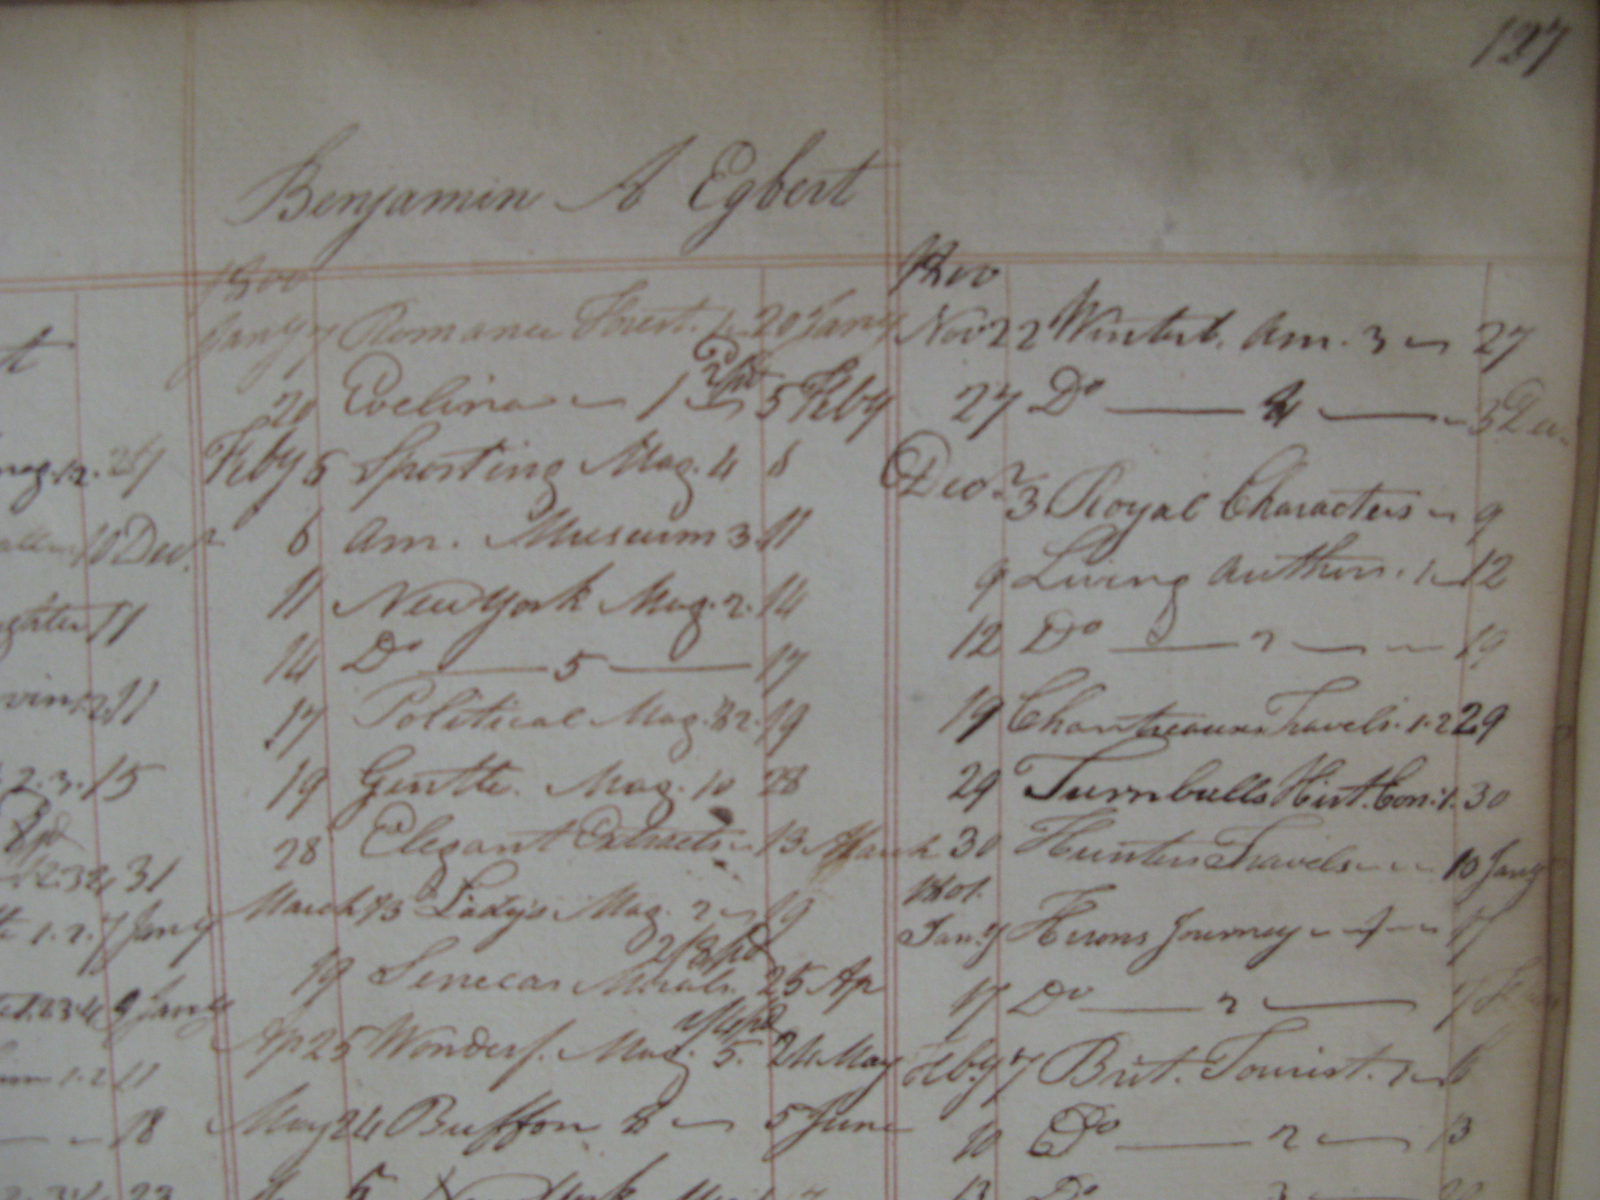 127
Benjamin A Egbert
1800
Jany 7 Romance Forest. 1 20 Jany
20 Evelina 1 2/ pd 5 Feby
Feby 5 Sporting Mag. 4 6
6 Am. Museum 3. 11
11 New York Mag. 2. 14
14 Do 5 17
17 Political Mag. 82. 19
19 Gentle. Mag. 10 28
28 Elegant Extracts 13 March
March 13 Lady's Mag. 2 19
19 Senecas Morals. 2/8 pd 25 Ap
Ap 25 Wonderf. Mag. 5. pd 24 May
May 24 Buffon 8 5 June
5 New York
1800
Nov 22 Winterb. Am. 3 27
27 Do 4 3 Dec.
Decr 3 Royal Characters 9
9 Living Authors. 1 12
12 Do 2 19
19 Chantreaux Travels. 1.2 29
29 Turnbulls Hist. Con: 1. 30
30 Hunters Travels 10 Jany
1801.
Jany Herons Journey 1 17
17 Do 2 7
Feby 7 Brit. Tourist. 1
10 Do 2 13
13 Do 3
mag. 12. 27
10 Decr.
11
11
2.3. 15
31
1.2. 7 Jany
1.2.3.4 9 Jany
1.2 11
18
23